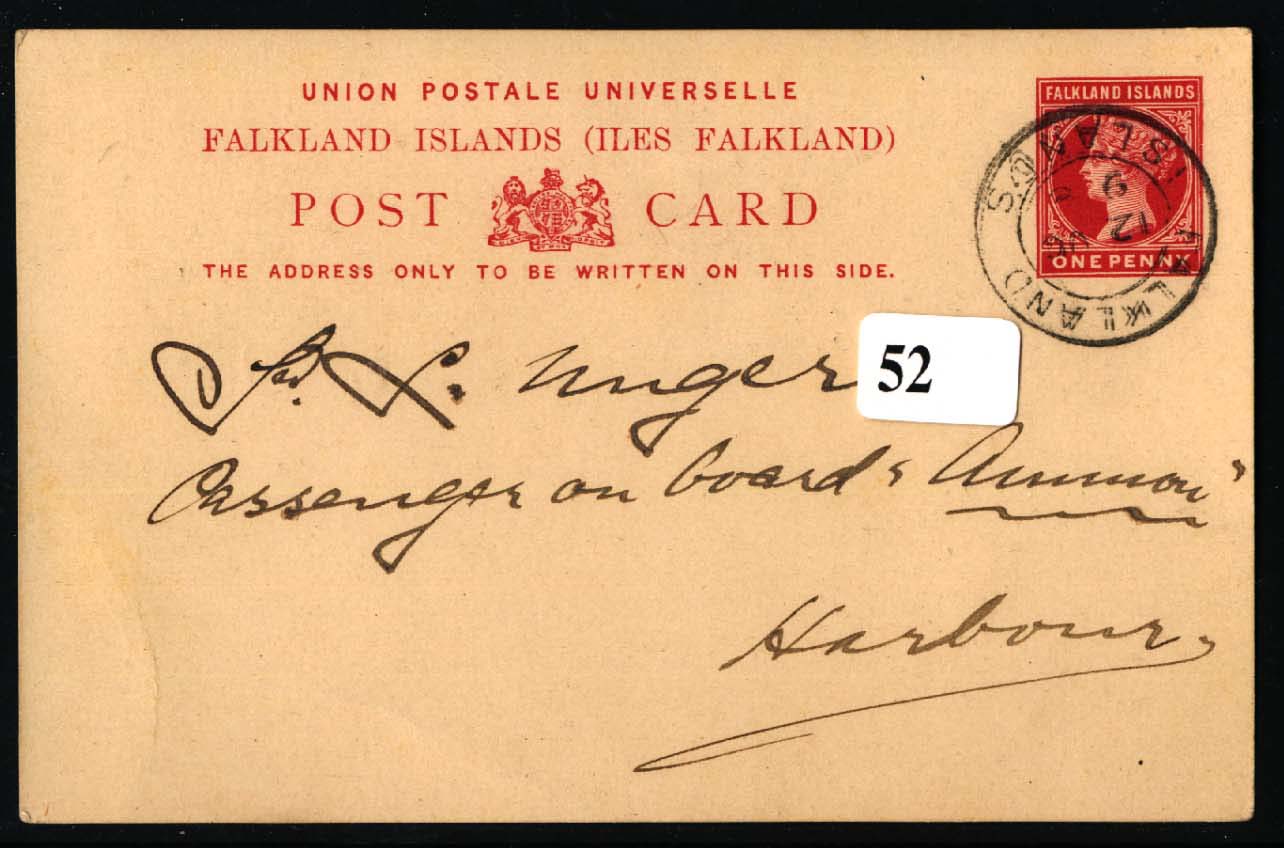 UNION POSTALE UNIVERSELLE
FALKLAND ISLANDS (ILES FALKLAND)
POST CARD
THE ADDRESS ONLY TO BE WRITTEN ON THIS SIDE.
FALKLAND ISLANDS
ONE PENNY
FALKLAND ISLANDS
12
Unger
52
Passenger on board "Ammon"
Harbour.